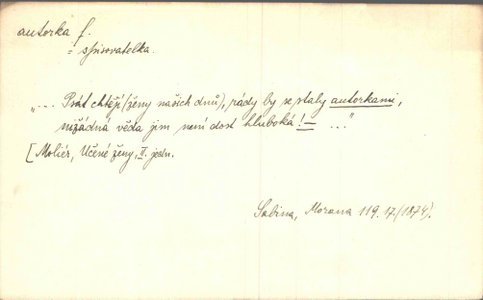 autorka f.
= spisovatelka.
„... Psát chtějí (ženy našich dnů), rády by se staly autorkami,
nižádná věda jim není dost hluboká! — ..."
[Moliér, Učené ženy, II. jedn.
Sabina, Morana 119. 17 (1874).